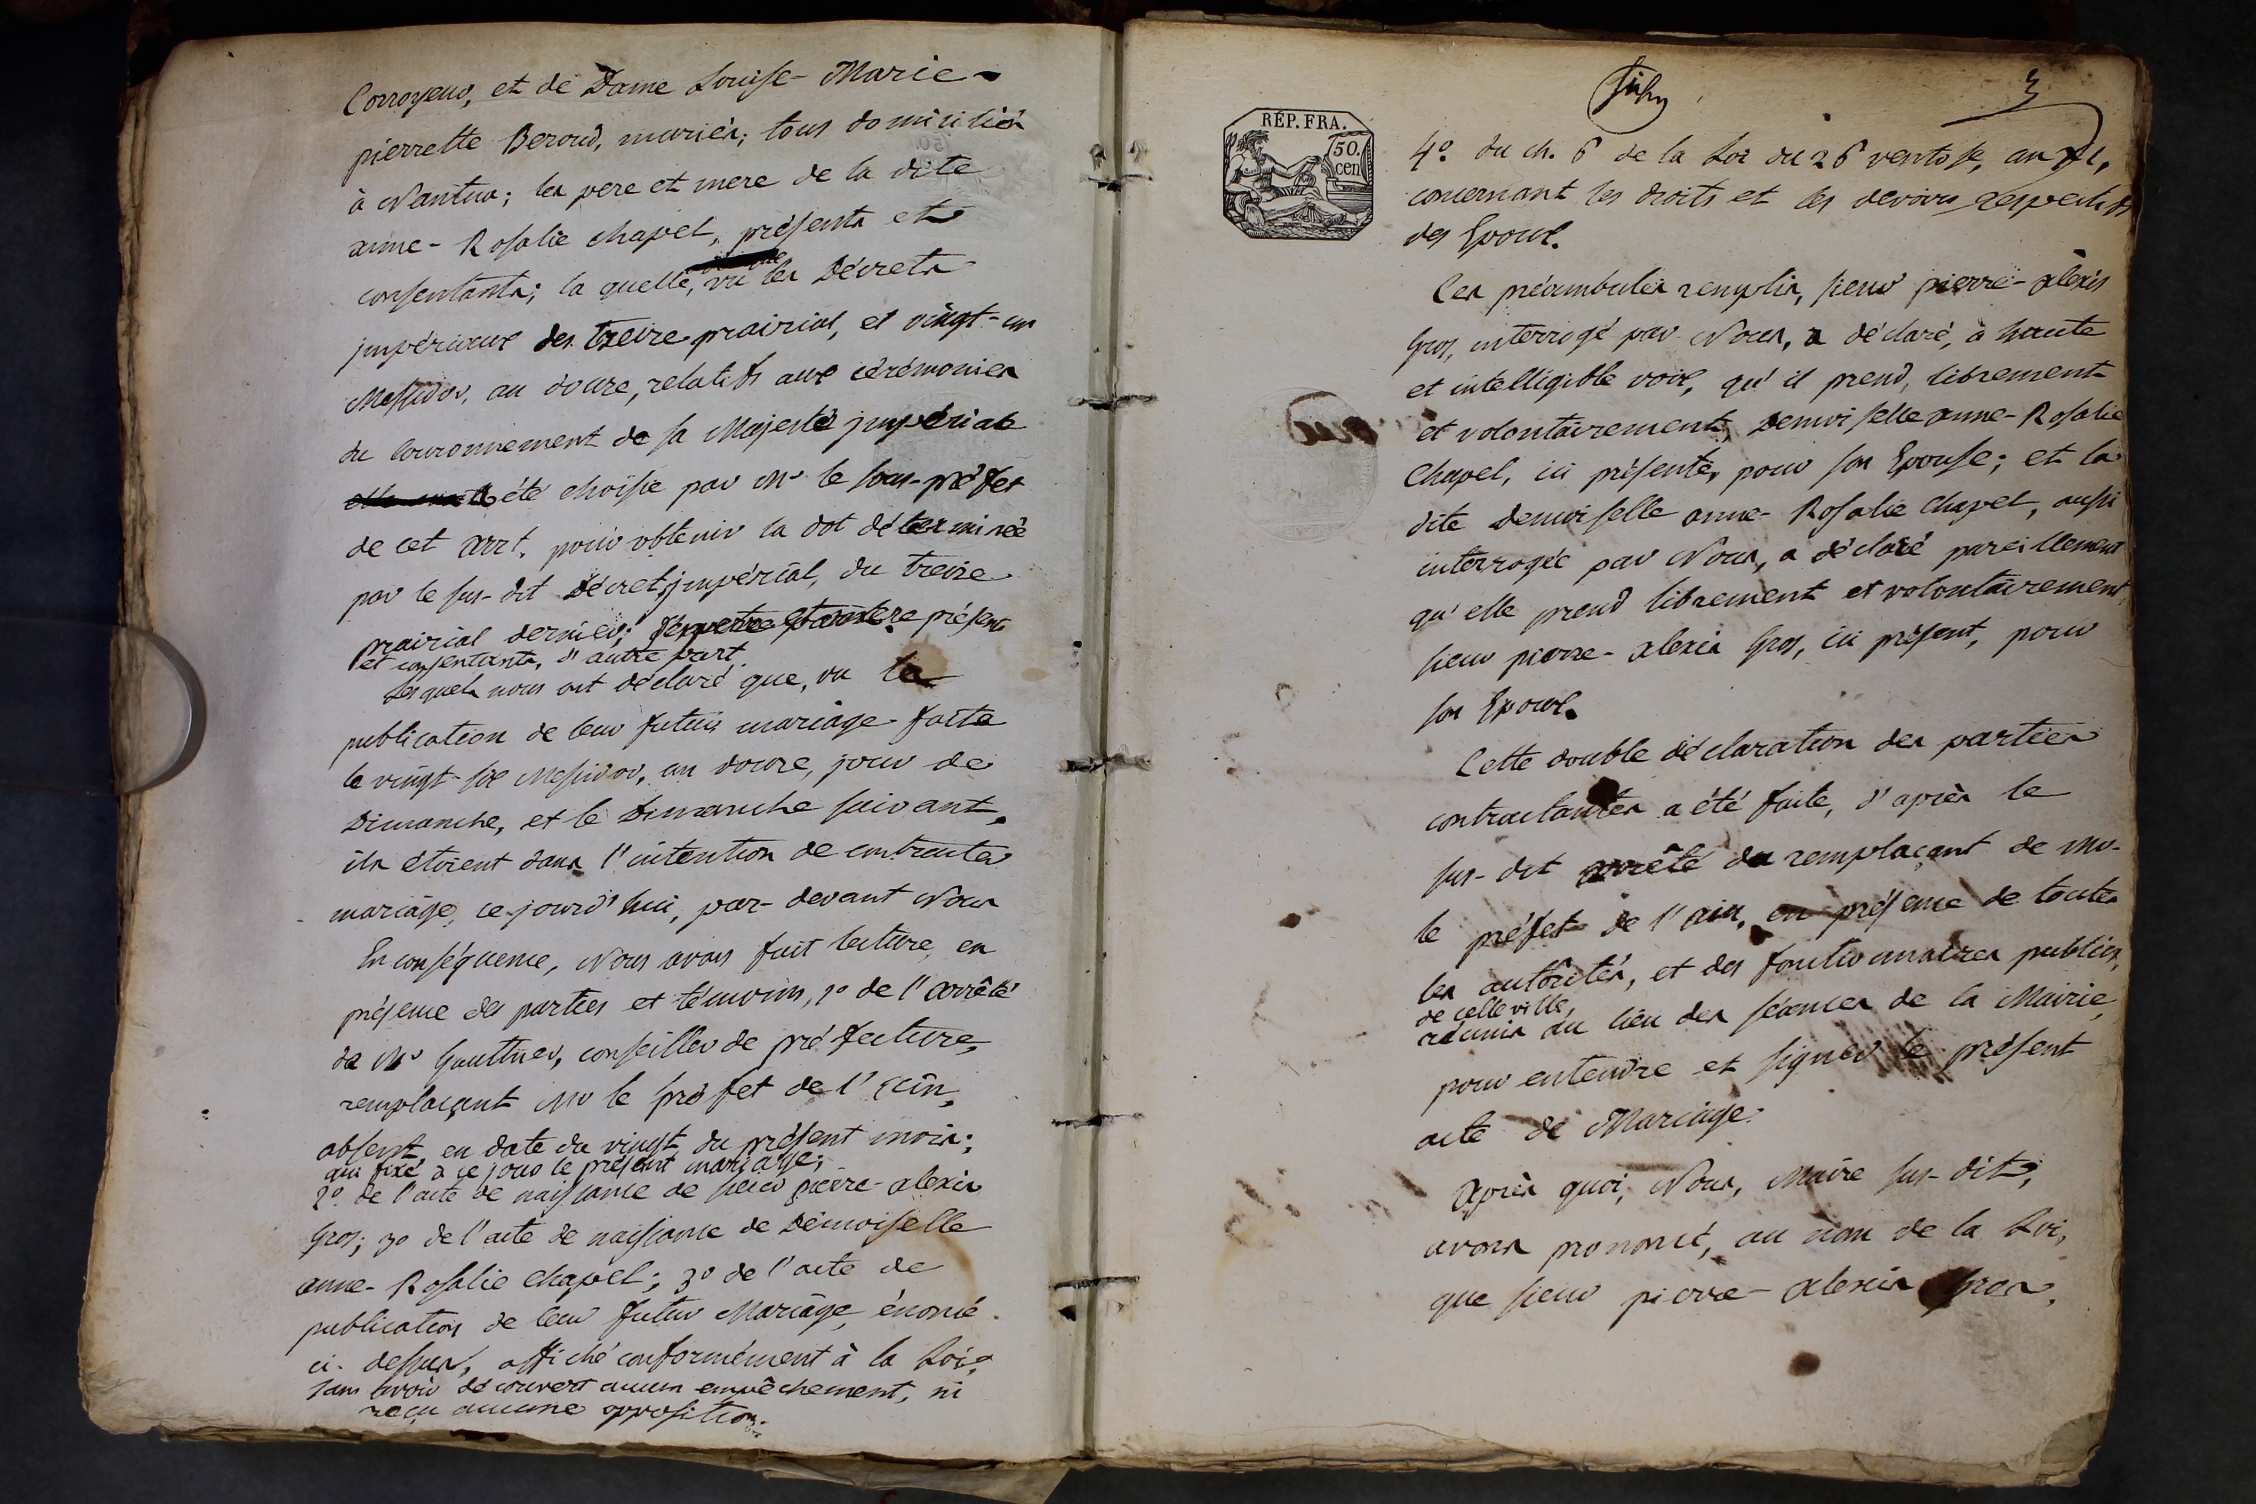 Corroyeur, et de Dame Louise-Marie
pierrette Beroud, mariés; tous domiciliés
à Nantua; les pere et mere de la dite
anne-Rosalie chapel, présents et
consentants; la quelle, vu les Décrets
impériaux des treize prairial, et vingt-un
Messidor, an douze, relatifs aux cérémonies
du Couronnement de sa Majesté impériale
été choisie par Mr le sous-préfet
de cet arrt. pour obtenir la dot déterminée
par le sus-dit Décret impérial, du treize
prairial dernier; présents
et consentants, d'autre part.
Lesquels nous ont déclaré que, vu la
publication de leur futur mariage faite
le vingt-six Messidor, an douze, jour de
Dimanche, et le Dimanche suivant,
ils étoient dans l'intention de contracter
mariage, ce-jourd'hui, par-devant Nous
En conséquence, Nous avons fait lecture, en
présence des parties et témoins, 1º de l'arrêté
de Mr Gauthier, conseiller de préfecture,
remplaçant Mr le préfet de l'Ain,
absent, en date du vingt du présent mois;
qui fixe à ce jour le présent mariage;
2º de l'acte de naissance de sieur pierre-alexis
Gros; 3º de l'acte de naissance de Demoiselle
anne-Rosalie chapel; 3º de l'acte de
publication de leur futur Mariage, énoncé
ci-dessus, affiché conformément à la Loi,
sans avoir découvert aucun empêchement, ni
reçu aucune opposition.
3
RÉP. FRA.
50.
cen
4º. du ch. 6 de la Loi du 26 ventose, an XI,
concernant les droits et les devoirs respectifs
des Epoux.
Ces préambules remplis, sieur pierre-alexis
Gros, interrogé par Nous, a déclaré, à haute
et intelligible voix, qu'il prend, librement
et volontairement, Demoiselle anne-Rosalie
Chapel, ici présente, pour son Epouse; et la
dite Demoiselle anne-Rosalie Chapel, aussi
interrogée par Nous, a déclaré pareillement
qu'elle prend librement et volontairement,
sieur pierre-alexis Gros, ici présent, pour
son Epoux.
Cette double déclaration des parties
contractantes a été faite, d'après le
sus-dit arrêté du remplaçant de Mr
le préfet de l'ain, en présence de toutes
les autorités, et des fonctionnaires publics,
de cette ville,
réunis au lieu des séances de la Mairie,
pour entendre et signer le présent
acte de Mariage.
Après quoi, Nous, Maire sus-dit,
avons prononcé, au nom de la Loi,
que sieur pierre-alexis Gros,